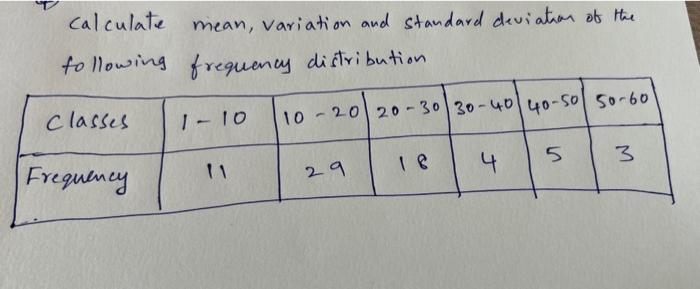 calculate mean, variation and standard deviation of the
following frequency distribution
Classes 1-10 10-20 20-30 30-40 40-50 50-60
Frequency 11 29 18 4 5 3